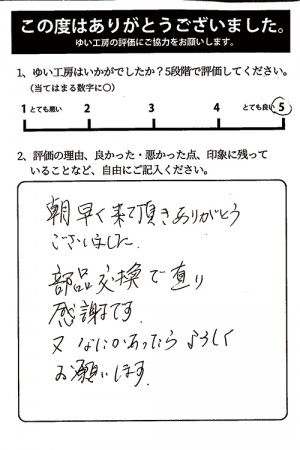 この度はありがとうございました。
ゆい工房の評価にご協力をお願いします。
1、ゆい工房はいかがでしたか?5段階で評価してください。
(当てはまる数字に○)
1 とても悪い 2 3 4 とても良い 5
2、評価の理由、良かった・悪かった点、印象に残って
いることなど、自由にご記入ください。
朝早く来て頂きありがとう
ございました.
部品交換で直り
感謝です.
又なにかあったらよろしく
お願いします.